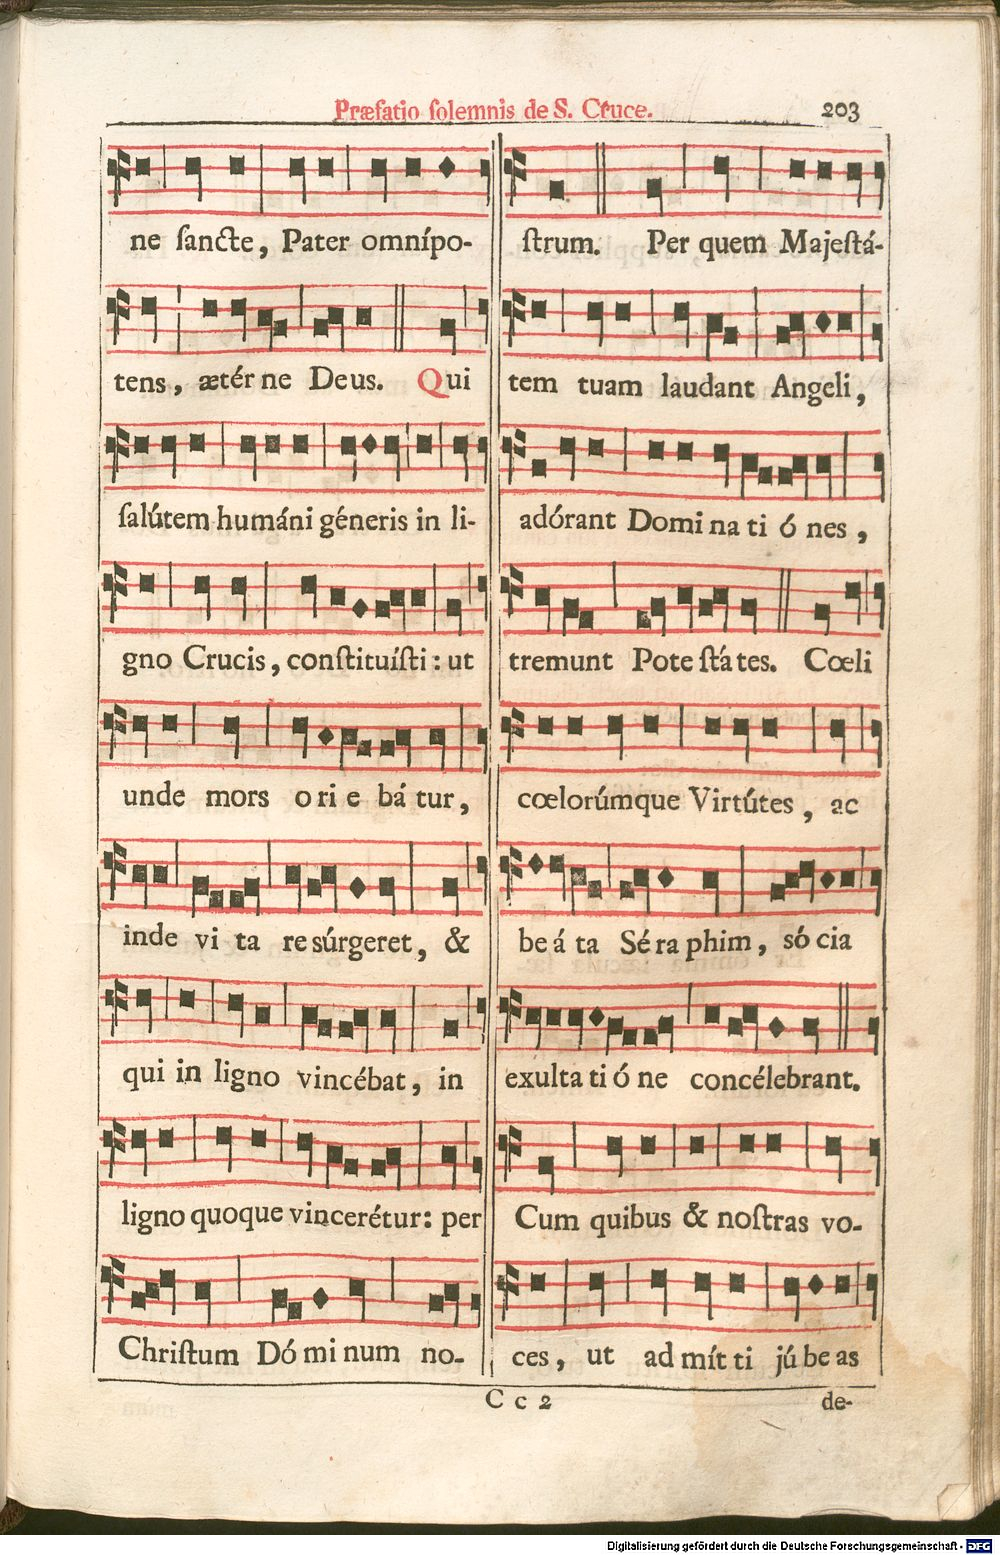 Præfatio ſolemnis de S. Cruce. 203
ne ſancte, Pater omnípo-
tens, ætér ne Deus. Qui
ſalútem humáni géneris in li-
gno Crucis, conſtituíſti: ut
unde mors o ri e bá tur,
inde vi ta re súrgeret, &
qui in ligno vincébat, in
ligno quoque vincerétur: per
Chriſtum Dó mi num no-
ſtrum. Per quem Majeſtá-
tem tuam laudant Angeli,
adórant Domi na ti ó nes,
tremunt Pote ſtá tes. Cœli
cœlorúmque Virtútes, ac
be á ta Sé ra phim, só cia
exulta ti ó ne concélebrant.
Cum quibus & noſtras vo-
ces, ut ad mít ti jú be as
C c 2 de-
Digitalisierung gefördert durch die Deutsche Forschungsgemeinschaft - DFG